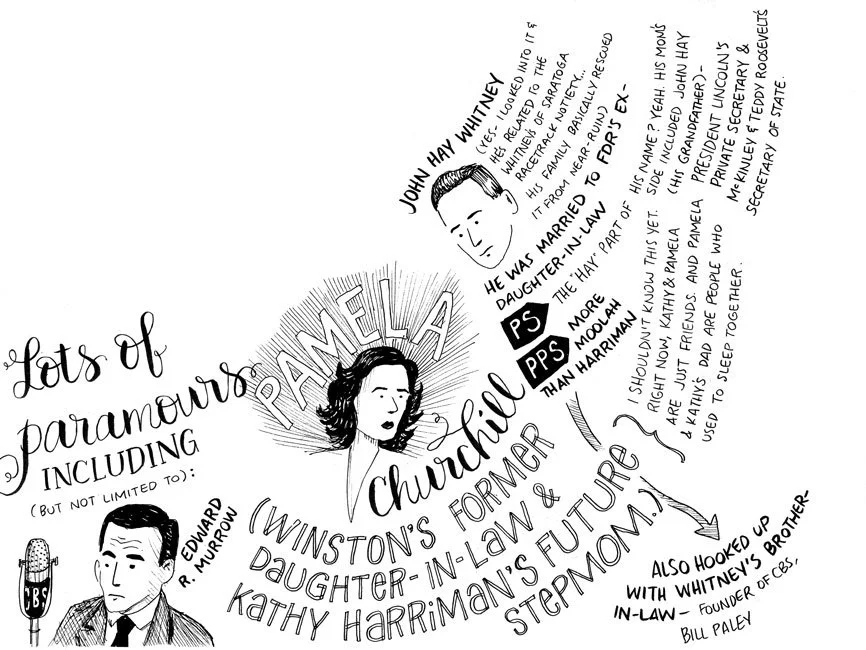 Lots of
paramours
INCLUDING
(BUT NOT LIMITED TO):
EDWARD
R. MURROW
CBS
PAMELA
Churchill
(WINSTON'S FORMER
DAUGHTER-IN-LAW &
KATHY HARRIMAN'S FUTURE
STEPMOM.)
JOHN HAY WHITNEY
(YES- I LOOKED INTO IT &
HE'S RELATED TO THE
WHITNEYS OF SARATOGA
RACETRACK NOTIETY...
HIS FAMILY BASICALLY RESCUED
IT FROM NEAR-RUIN)
HE WAS MARRIED TO FDR'S EX-
DAUGHTER-IN-LAW
PS
THE "HAY" PART OF HIS NAME? YEAH. HIS MOM'S
SIDE INCLUDED JOHN HAY
(HIS GRANDFATHER)-
PRESIDENT LINCOLN'S
PRIVATE SECRETARY &
McKINLEY & TEDDY ROOSEVELT'S
SECRETARY OF STATE.
PPS
MORE
MOOLAH
THAN HARRIMAN
I SHOULDN'T KNOW THIS YET.
RIGHT NOW, KATHY & PAMELA
ARE JUST FRIENDS. AND PAMELA
& KATHY'S DAD ARE PEOPLE WHO
USED TO SLEEP TOGETHER.
ALSO HOOKED UP
WITH WHITNEY'S BROTHER-
IN-LAW- FOUNDER OF CBS,
BILL PALEY